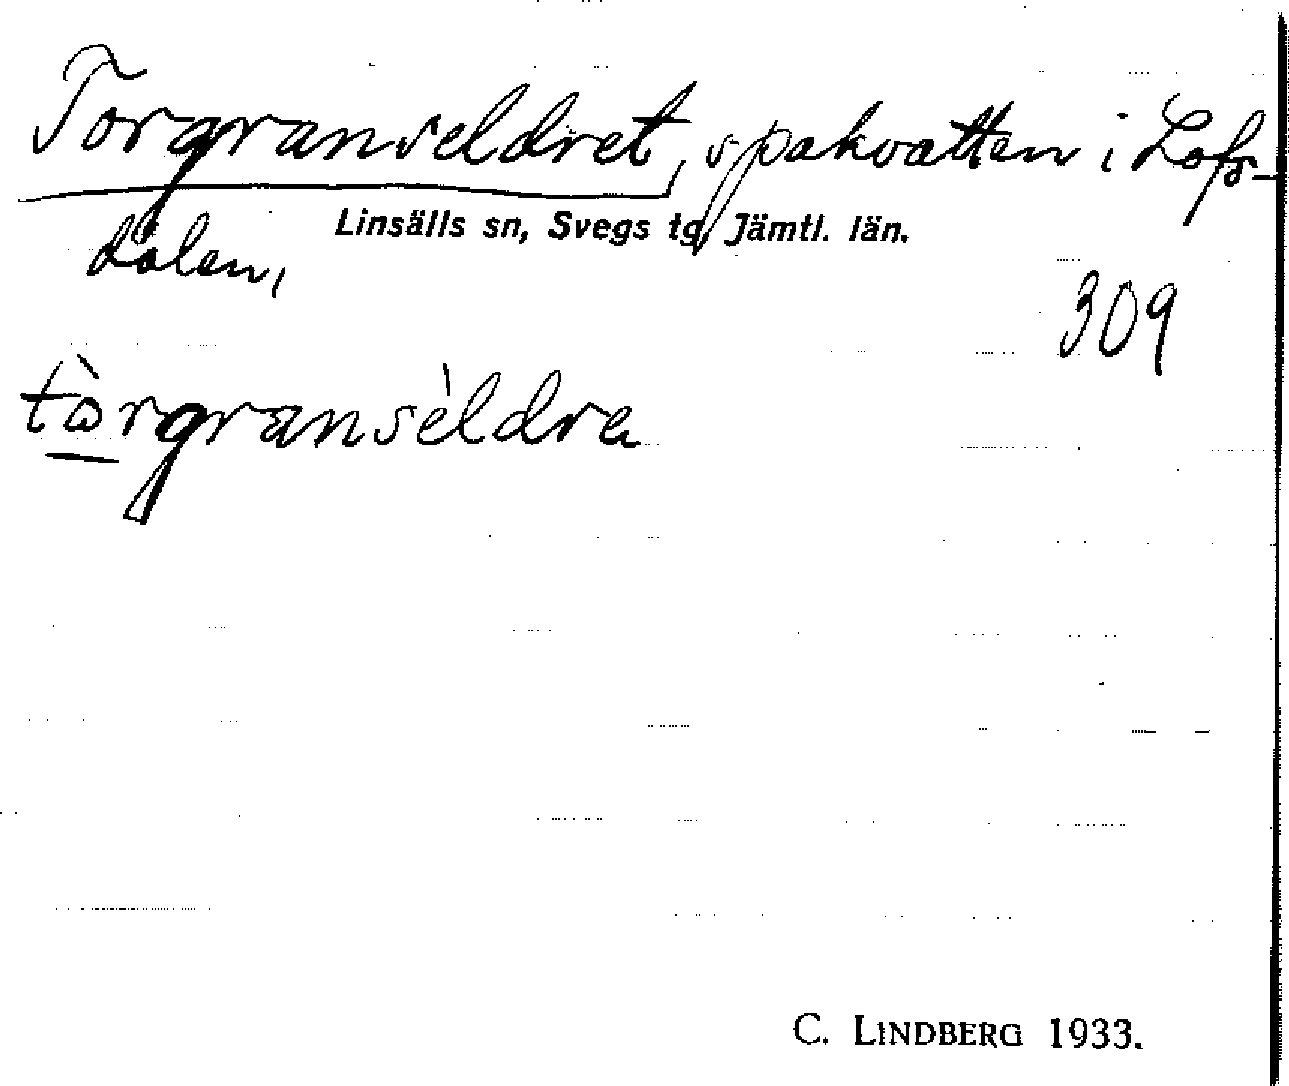 Torgranseldret, spakvatten i Lofs-
Linsälls sn, Svegs tg, Jämtl. län.
dalen,
309
tòrgransèldra
C. LINDBERG 1933.